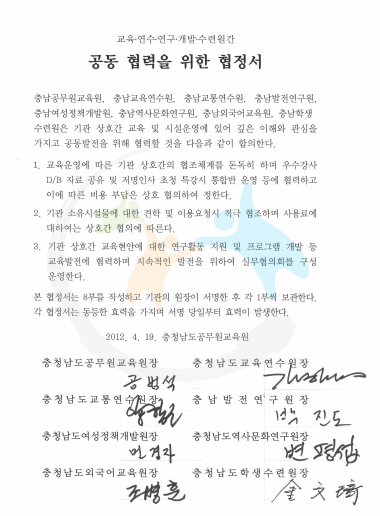 교육·연수·연구·개발·수련원간
공동 협력을 위한 협정서
충남공무원교육원, 충남교육연수원, 충남교통연수원, 충남발전연구원,
충남여성정책개발원, 충남역사문화연구원, 충남외국어교육원, 충남학생
수련원은 기관 상호간 교육 및 시설운영에 있어 깊은 이해와 관심을
가지고 공동발전을 위해 협력할 것을 다음과 같이 합의한다.
1. 교육운영에 따른 기관 상호간의 협조체계를 돈독히 하며 우수강사
D/B 자료 공유 및 저명인사 초청 특강시 통합반 운영 등에 협력하고
이에 따른 비용 부담은 상호 협의하여 정한다.
2. 기관 소유시설물에 대한 견학 및 이용요청시 적극 협조하며 사용료에
대하여는 상호간 협의에 따른다.
3. 기관 상호간 교육현안에 대한 연구활동 지원 및 프로그램 개발 등
교육발전에 협력하며 지속적인 발전을 위하여 실무협의회를 구성
운영한다.
본 협정서는 8부를 작성하고 기관의 원장이 서명한 후 각 1부씩 보관한다.
각 협정서는 동등한 효력을 가지며 서명 당일부터 효력이 발생한다.
2012. 4. 19. 충청남도공무원교육원
충청남도공무원교육원장 충청남도교육연수원장
공범석
충청남도교통연수원장 충남발전연구원장
박진도
충청남도여성정책개발원장 충청남도역사문화연구원장
민경자 변평섭
충청남도외국어교육원장 충청남도학생수련원장
조병훈 金文